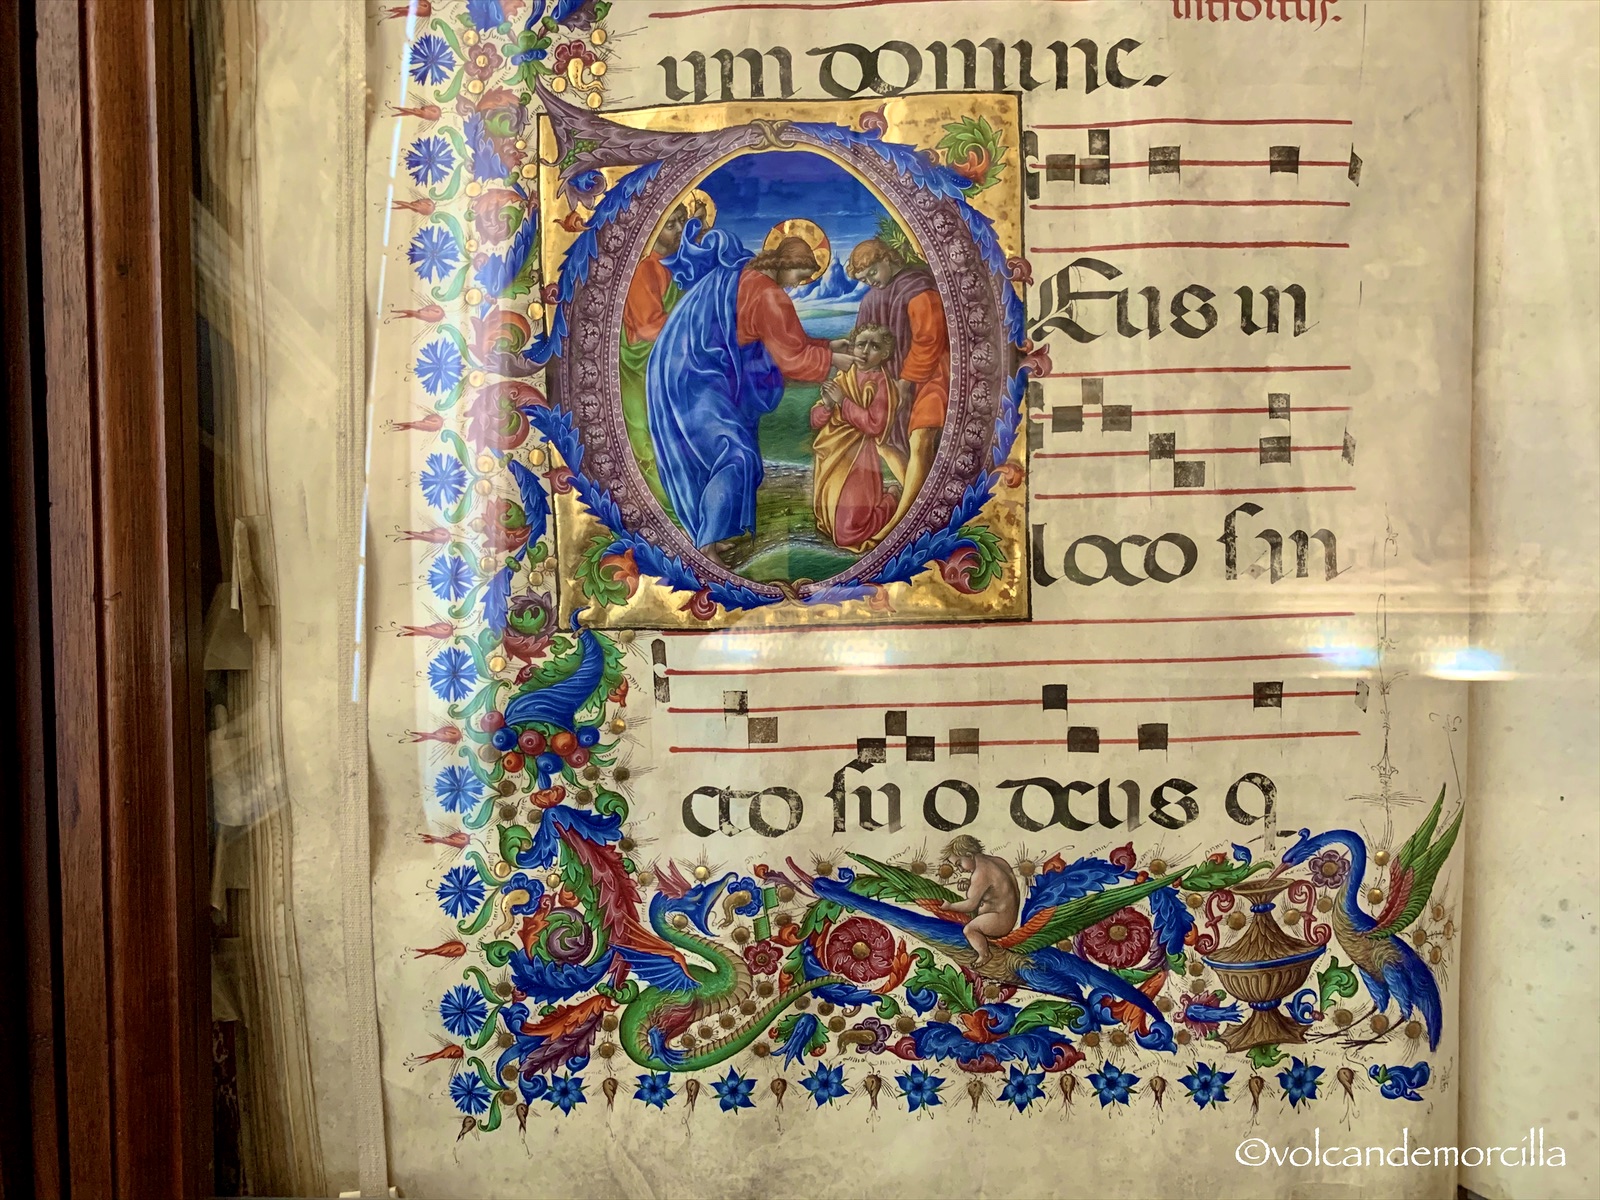 um domine.
Eus in
loco san
cto su o deus q
©volcandemorcilla